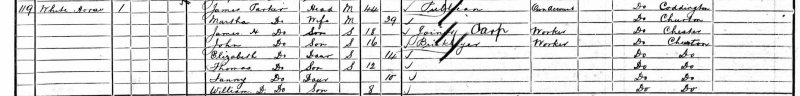 119 White Horse 1 James Parker Head M 44 Publican Own Account Do Coddington
Martha Do Wife M 39 Do Churton
James H Do Son S 18 Joiner Carp Worker Do Chester
John Do Son S 16 Bricklayer Worker Do Churton
Elizabeth Do Daur S 14 Do Do
Thomas Do Son S 12 Do Do
Fanny Do Daur 10 Do Do
William D. Do Son 8 Do Do